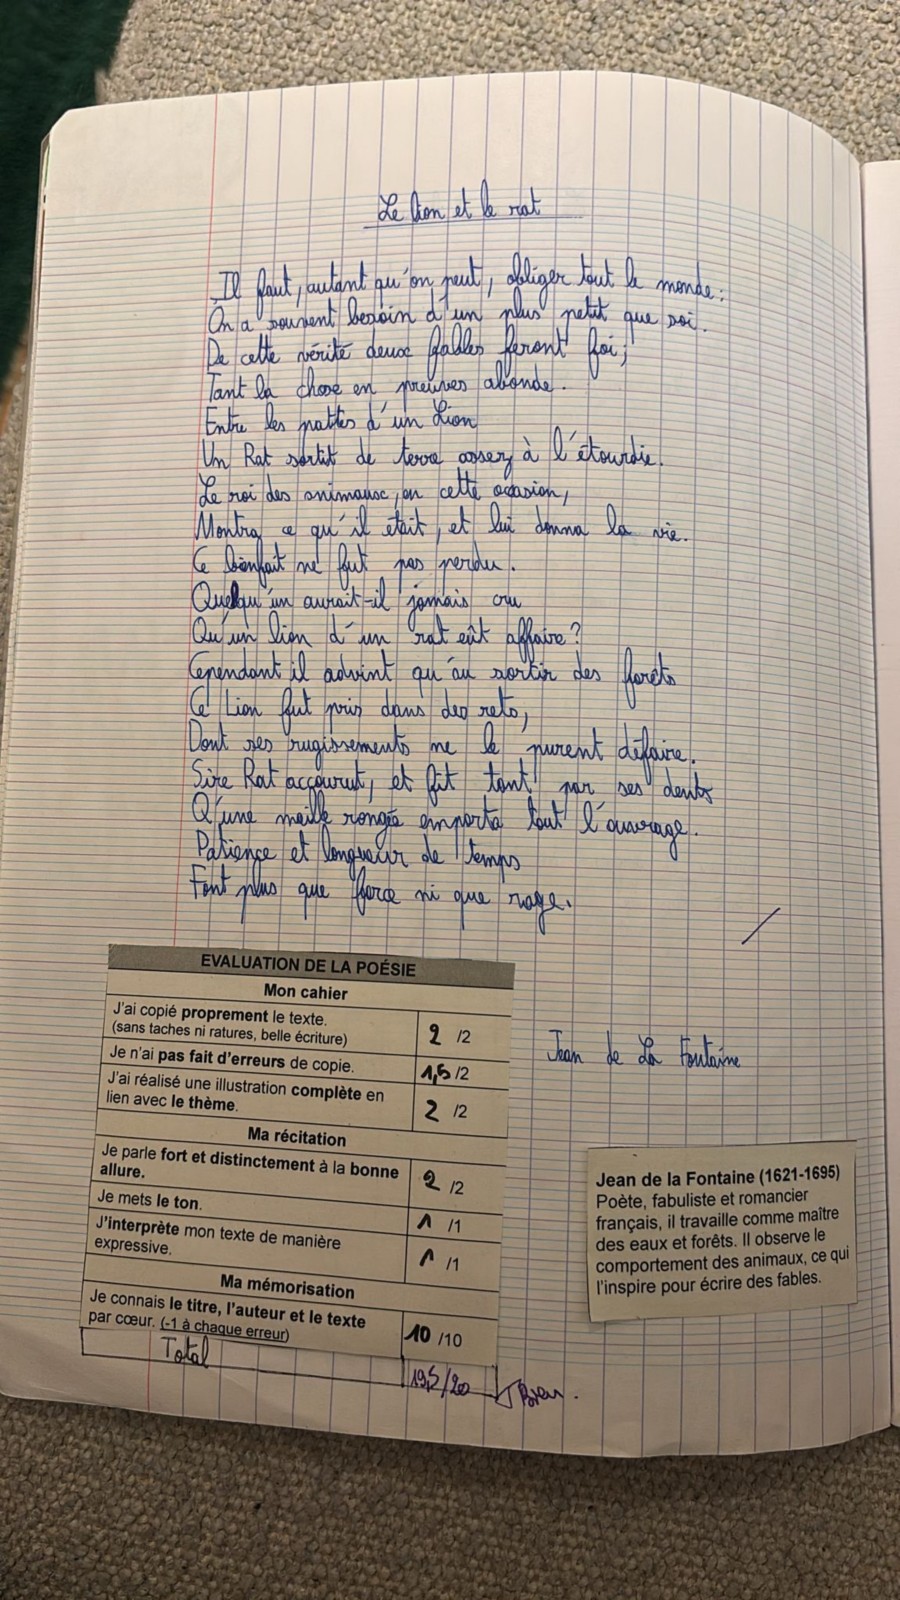 Le lion et le rat
Il faut, autant qu'on peut, obliger tout le monde :
On a souvent besoin d'un plus petit que soi.
De cette vérité deux fables feront foi ;
Tant la chose en preuves abonde.
Entre les pattes d'un Lion
Un Rat sortit de terre assez à l'étourdie.
Le roi des animaux, en cette occasion,
Montra ce qu'il était, et lui donna la vie.
Ce bienfait ne fut pas perdu.
Quelqu'un aurait-il jamais cru
Qu'un lion d'un rat eût affaire ?
Cependant il advint qu'au sortir des forêts
Ce Lion fut pris dans des rets,
Dont ses rugissements ne le purent défaire.
Sire Rat accourut, et fit tant par ses dents
Q'une maille rongée emporta tout l'ouvrage.
Patience et longueur de temps
Font plus que force ni que rage.
Jean de La Fontaine
EVALUATION DE LA POÉSIE
Mon cahier
J'ai copié proprement le texte.
(sans taches ni ratures, belle écriture) 2 /2
Je n'ai pas fait d'erreurs de copie. 1,5 /2
J'ai réalisé une illustration complète en
lien avec le thème. 2 /2
Ma récitation
Je parle fort et distinctement à la bonne
allure. 2 /2
Je mets le ton. 1 /1
J'interprète mon texte de manière
expressive. 1 /1
Ma mémorisation
Je connais le titre, l'auteur et le texte
par cœur. (-1 à chaque erreur) 10 /10
Total 19,5/20 Bien.
Jean de la Fontaine (1621-1695)
Poète, fabuliste et romancier
français, il travaille comme maître
des eaux et forêts. Il observe le
comportement des animaux, ce qui
l'inspire pour écrire des fables.